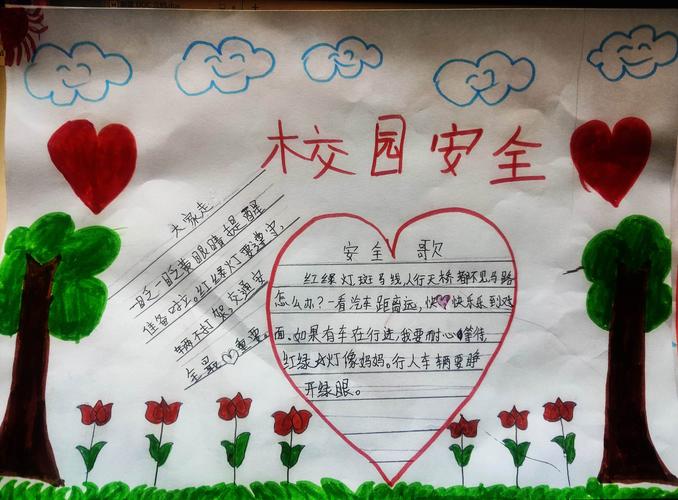 校园安全
大家走，
一眨一眨黄眼睛提醒
准备好立。红绿灯要遵守，
辆不打架交通安
全最重要。
安全歌
红绿灯斑马线，人行天桥都不见马路
怎么办？一看汽车距离远，快快乐乐到对
面。如果有车在行进，我要耐心等待，
红绿灯像妈妈。行人车辆要睁
开绿眼。